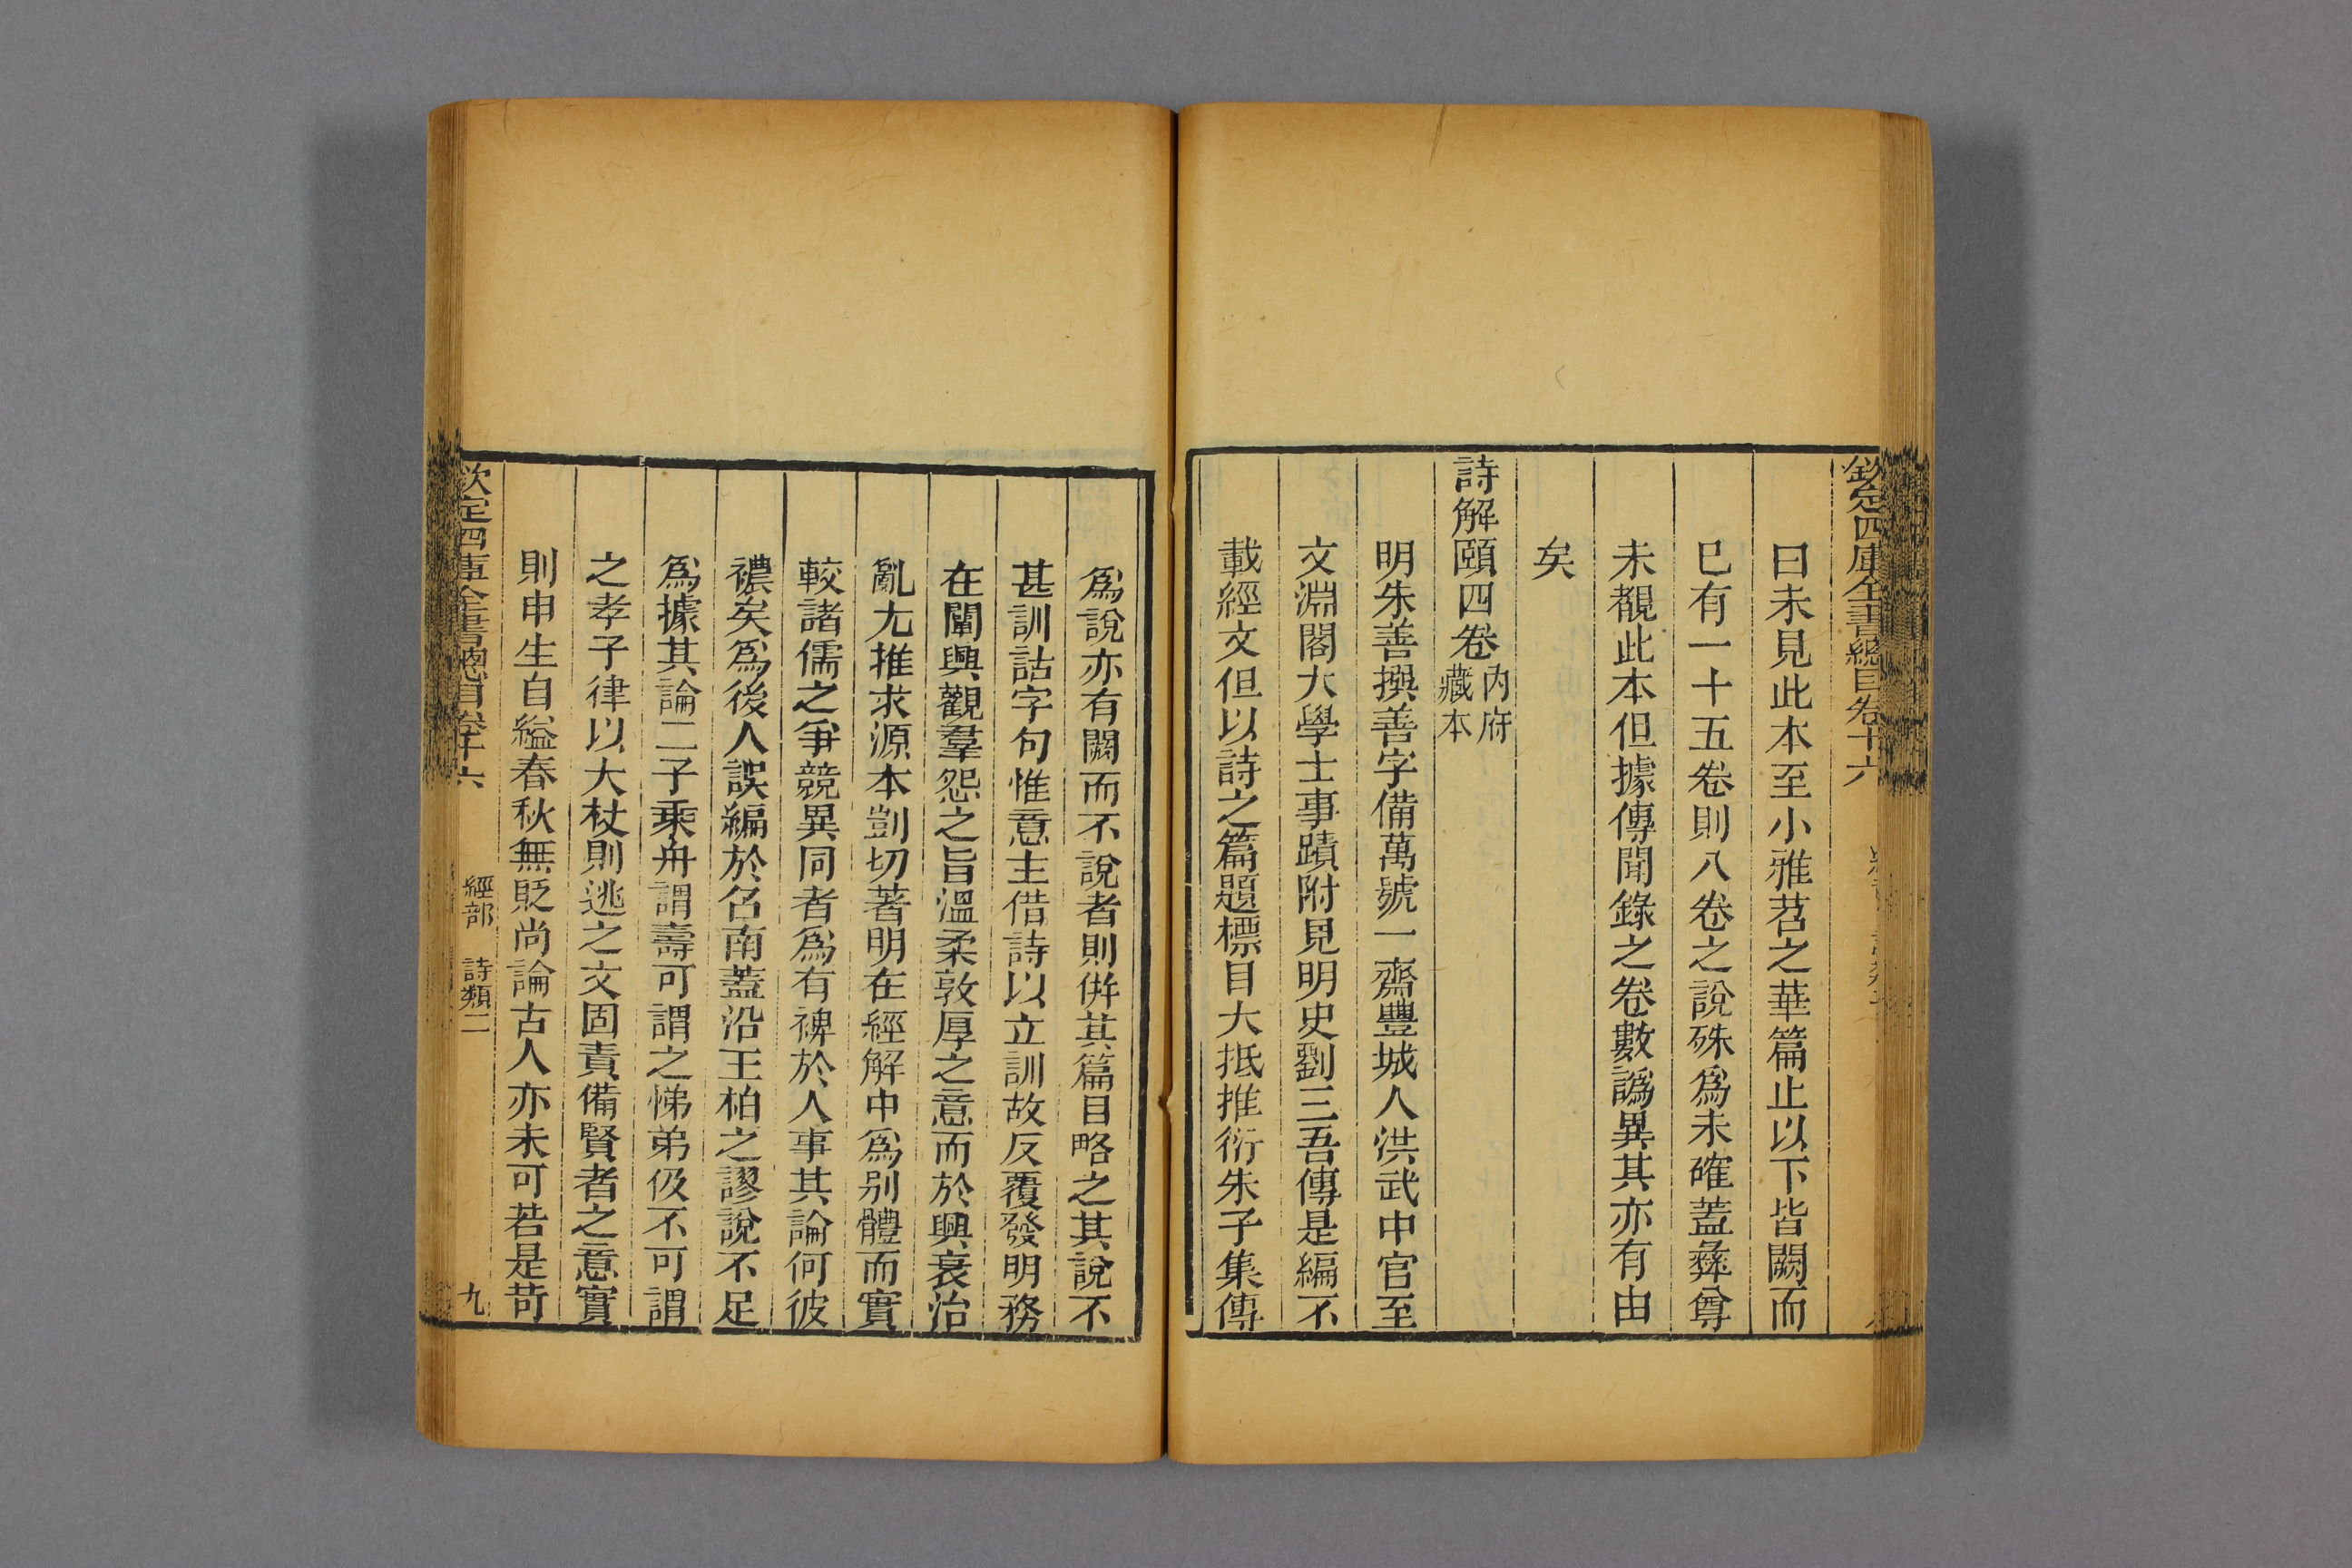 欽定四庫全書總目卷十六
曰未見此本至小雅苕之華篇止以下皆闕而
巳有一十五卷則八卷之說殊爲未確蓋彝尊
未覩此本但據傳聞錄之卷數譌異其亦有由
矣
詩解頤四卷內府藏本
明朱善撰善字備萬號一齋豐城人洪武中官至
文淵閣大學士事蹟附見明史劉三吾傳是編不
載經文但以詩之篇題標目大抵推衍朱子集傳
爲說亦有闕而不說者則倂其篇目略之其說不
甚訓詁字句惟意主借詩以立訓故反覆發明務
在闡興觀羣怨之旨溫柔敦厚之意而於興衰治
亂尤推求源本剴切著明在經解中爲別體而實
較諸儒之爭競異同者爲有裨於人事其論何彼
襛矣爲後人誤編於召南蓋沿王柏之謬說不足
爲據其論二子乘舟謂壽可謂之悌弟伋不可謂
之孝子律以大杖則逃之文固責備賢者之意實
則申生自縊春秋無貶尚論古人亦未可若是苛
欽定四庫全書總目卷十六
經部 詩類二
九